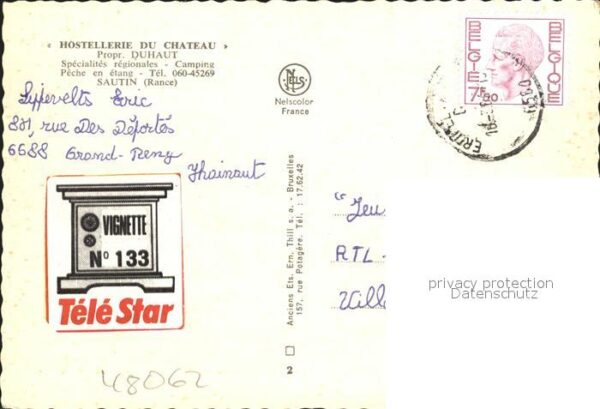 « HOSTELLERIE DU CHATEAU »
Propr. DUHAUT
Spécialités régionales - Camping
Pêche en étang - Tél. 060-45269
SAUTIN (Rance)
Eric
801, rue Des Déportés
6688 Grand-Reng
Hainaut
VIGNETTE
N° 133
Télé Star
48062
NELS
Nelscolor
France
Anciens Ets. Ern. Thill s. a. - Bruxelles
157, rue Potagère. Tél. : 17.62.42
2
BELGIE BELGIQUE
7,50
" Jeu
RTL -
Villa
privacy protection
Datenschutz